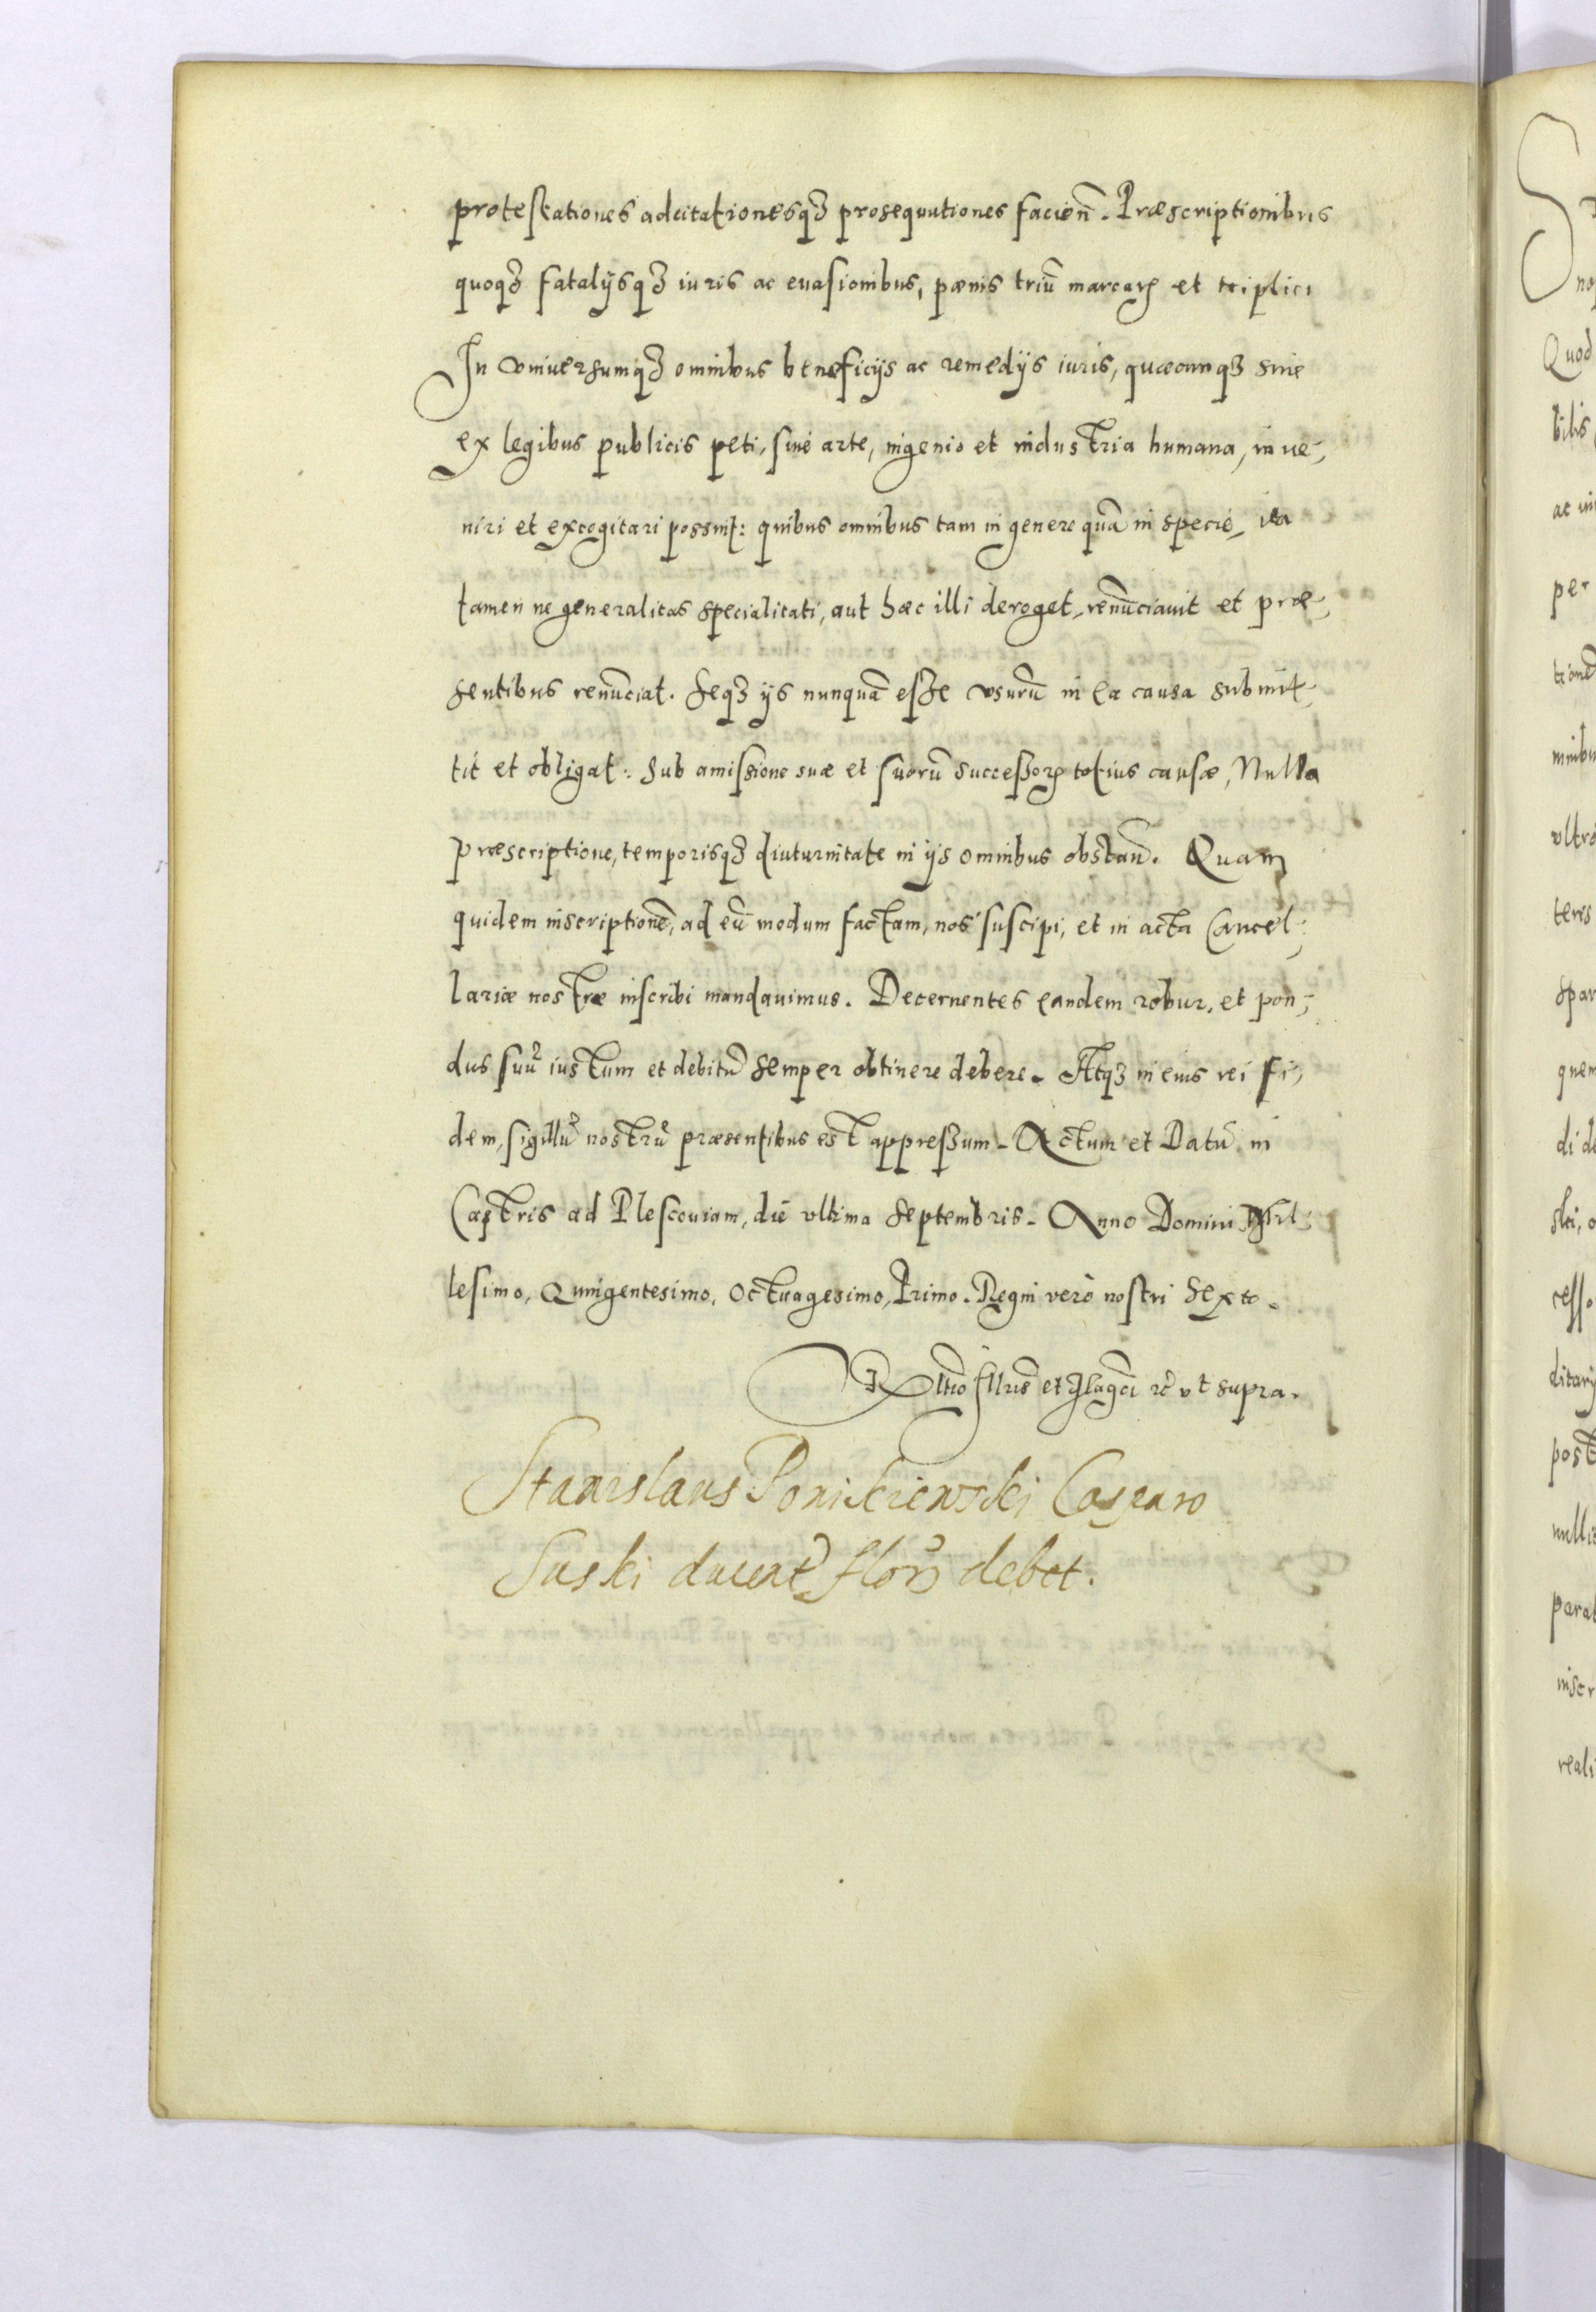 protestationes adcitationesq(ue) prosequutiones facien̄. Præscriptionibus
quoq(ue) fatalijsq(ue) iuris ac euasionibus, pænis triū marcarꝝ et triplici
In vniuersumq(ue) omnibus beneficijs ac remedijs iuris, quæcunqꝫ siue
ex legibus publicis peti, siue arte, ingenio et industria humana, inue-
niri et excogitari possint: quibus omnibus tam in genere quā in specie, ita
tamen ne generalitas specialitati, aut hæc illi deroget, renūciauit et præ-
sentibus renūciat. Seqꝫ ijs nunquā esse vsurū in ea causa submit-
tit et obligat: Sub amissione suæ et suorū successorꝝ totius causæ, Nulla
præscriptione, temporisqꝫ diuturnitate in ijs omnibus obstan̄. Quam
quidem inscriptionē, ad eū modum factam, nos suscipi, et in acta Cancel-
lariæ nostræ inscribi mandauimus. Decernentes eandem robur, et pon-
dus suū iustum et debitū semper obtinere debere. Atqꝫ in eius rei fi-
dem, sigillū nostrū præsentibus est appressum. Actum et Datū in
Castris ad Plescouiam, die vltima Septembris. Anno Domini Mil-
lesimo, Quingentesimo, Octuagesimo, Primo. Regni verò nostri Sexto.
Rltio Illris et Magci ꝛc̄ vt supra.
Stanislaus Ponikiewski Casparo
Suski ducent flor debet.
Quod
bilis
ac
per
tione
minibu
vltro
teres
spar
quem
di de
ski, o
cesso
ditarij
post
nullis
parat
inscr
reali